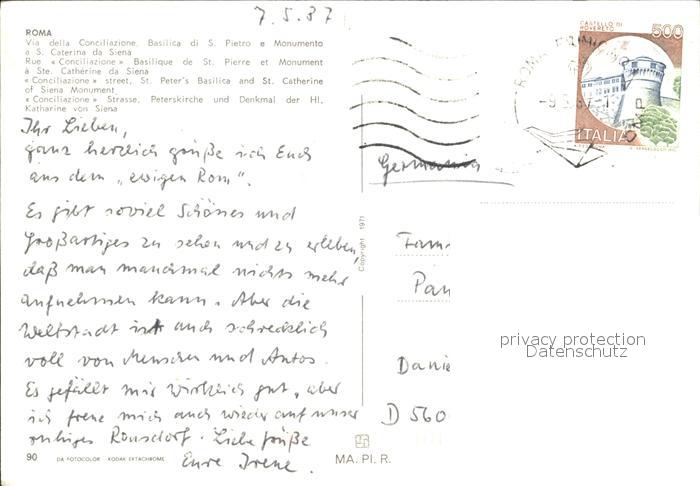 7.5.87
ROMA
Via della Conciliazione. Basilica di S. Pietro e Monumento
a S. Caterina da Siena
Rue « Conciliazione » Basilique de St. Pierre et Monument
à Ste. Cathérine da Siena
« Conciliazione » street, St. Peter's Basilica and St. Catherine
of Siena Monument
« Conciliazione » Strasse, Peterskirche und Denkmal der Hl.
Katharine von Siena
Ihr Lieben,
ganz herzlich grüße ich Euch
aus dem „ewigen Rom".
Es gibt soviel Schönes und
Großartiges zu sehen und zu erleben,
daß man manchmal nichts mehr
aufnehmen kann. Aber die
Weltstadt ist auch schrecklich
voll von Menschen und Autos.
Es gefällt mir wirklich gut, aber
ich freue mich auch wieder auf unser
ruhiges Ronsdorf. Liebe Grüße
Eure Irene.
90 DA FOTOCOLOR KODAK EKTACHROME
Copyright 1971
MA. PI. R.
CASTELLO DI
ROVERETO
500
ITALIA
ROMA
Germania
Fam
Pan
Danie
D 560
privacy protection
Datenschutz